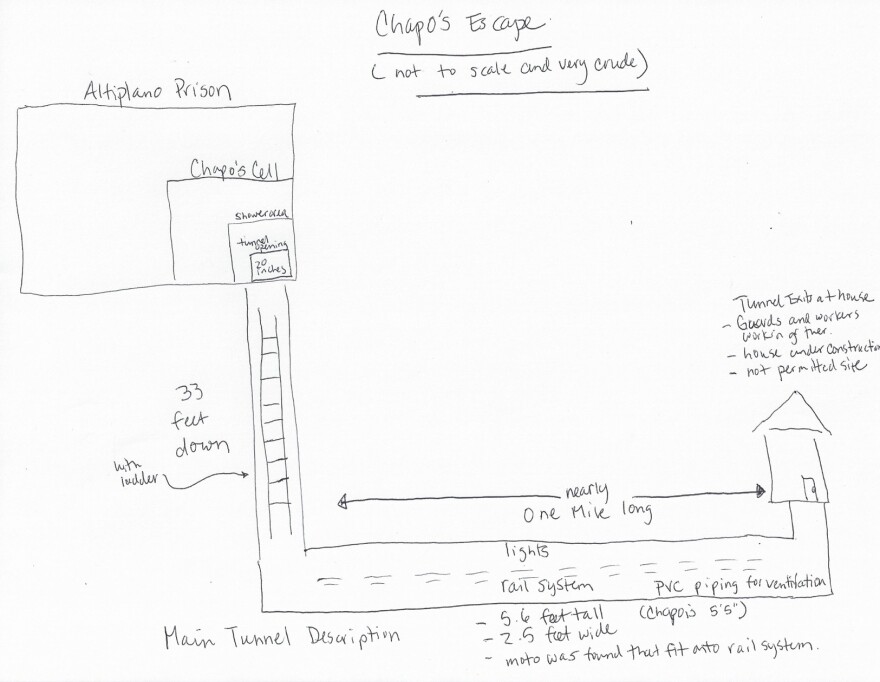 Chapo's Escape
(not to scale and very crude)
Altiplano Prison
Chapo's Cell
shower area
tunnel
opening
20
inches
Tunnel Exit at house
- Guards and workers
workin of ther.
- house under constructio
- not permitted site
33
feet
down
with
ladder
nearly
One Mile long
lights
rail system
PVC piping for ventilation
Main Tunnel Description
- 5.6 feet tall (Chapo is 5'5")
- 2.5 feet wide
- moto was found that fit onto rail system.